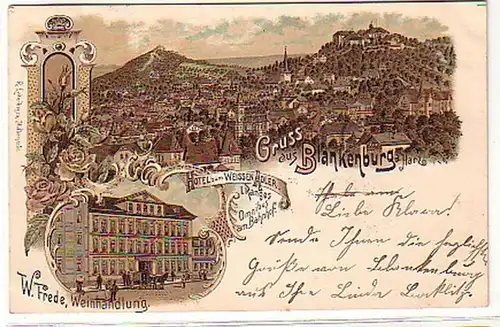 Gruss
aus Blankenburg a/Harz
HOTEL zum WEISSEN ADLER.
I. Ranges
Omnibus
am Bahnhof.
W. Frede, Weinhandlung.
Liebe Klara!
Sende Ihnen die herzlichsten
Grüße von
aus Ihre Linda